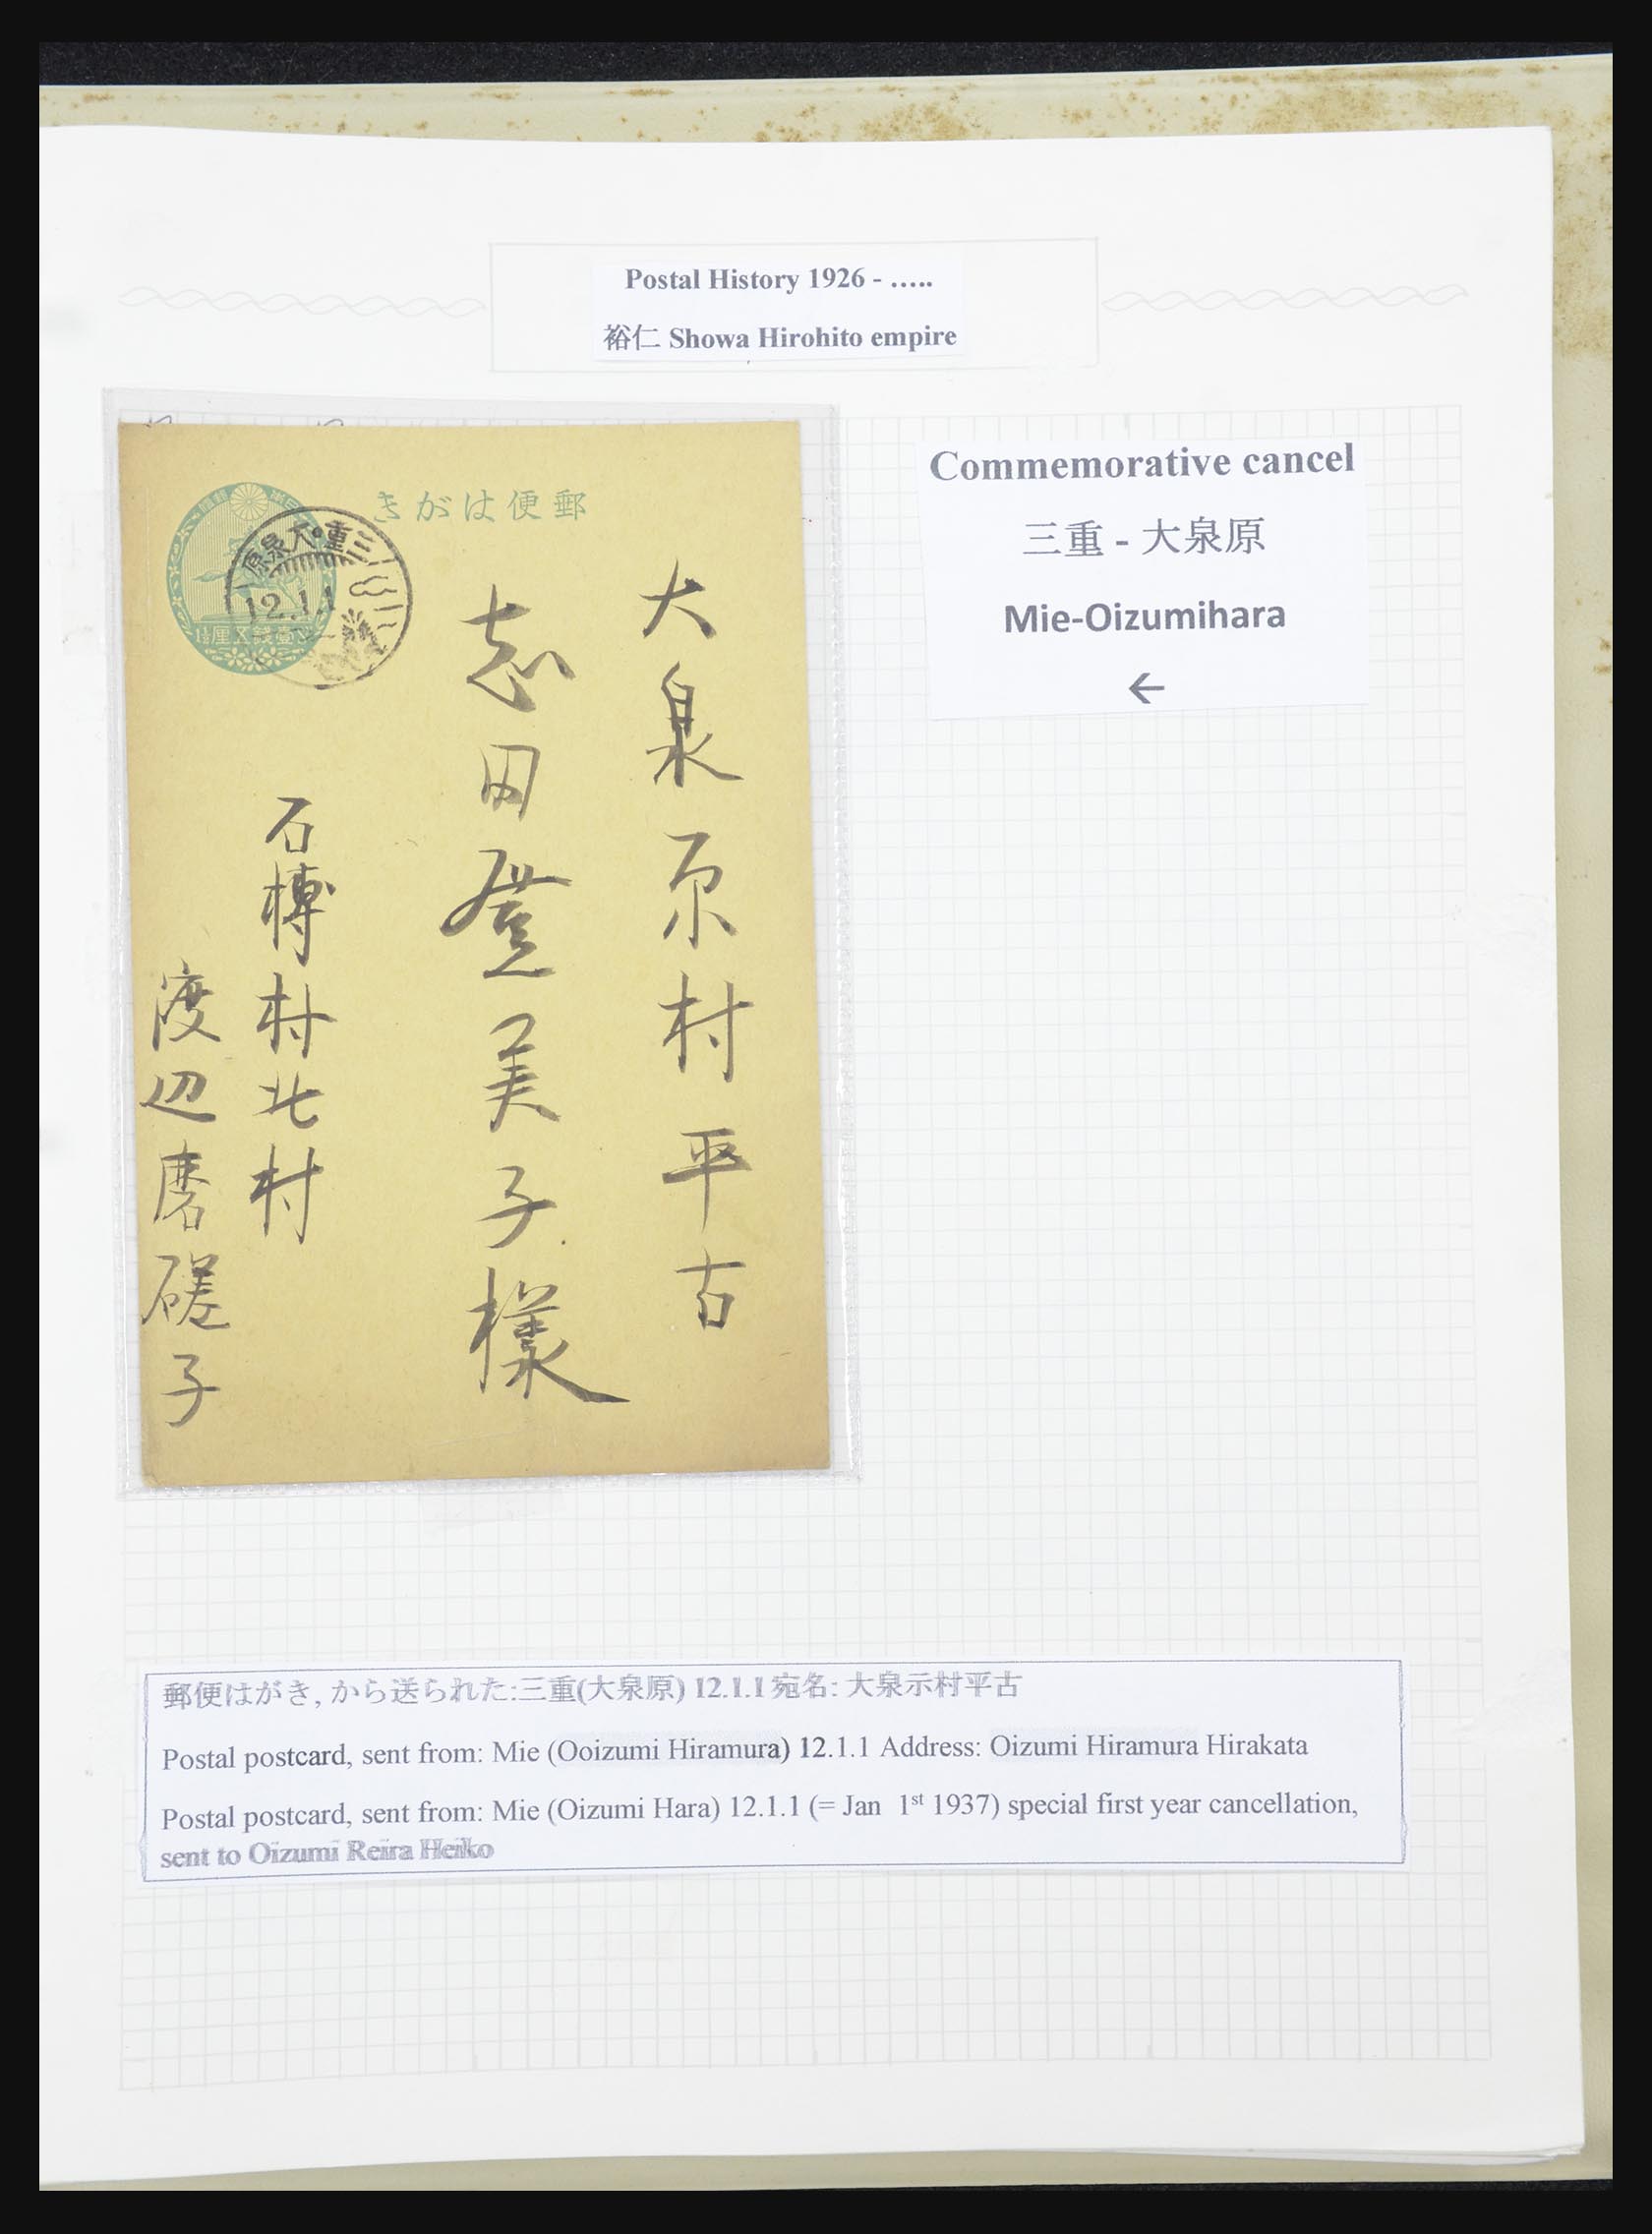 Postal History 1926 - …..
裕仁 Showa Hirohito empire
Commemorative cancel
三重 - 大泉原
Mie-Oizumihara
←
きがは便郵
三重・大泉原
12.1.1
大泉原村平古
志田登美子様
石榑村北村
渡辺磨磋子
郵便はがき, から送られた:三重(大泉原) 12.1.1 宛名: 大泉示村平古
Postal postcard, sent from: Mie (Ooizumi Hiramura) 12.1.1 Address: Oizumi Hiramura Hirakata
Postal postcard, sent from: Mie (Oizumi Hara) 12.1.1 (= Jan 1st 1937) special first year cancellation,
sent to Oizumi Reira Heiko